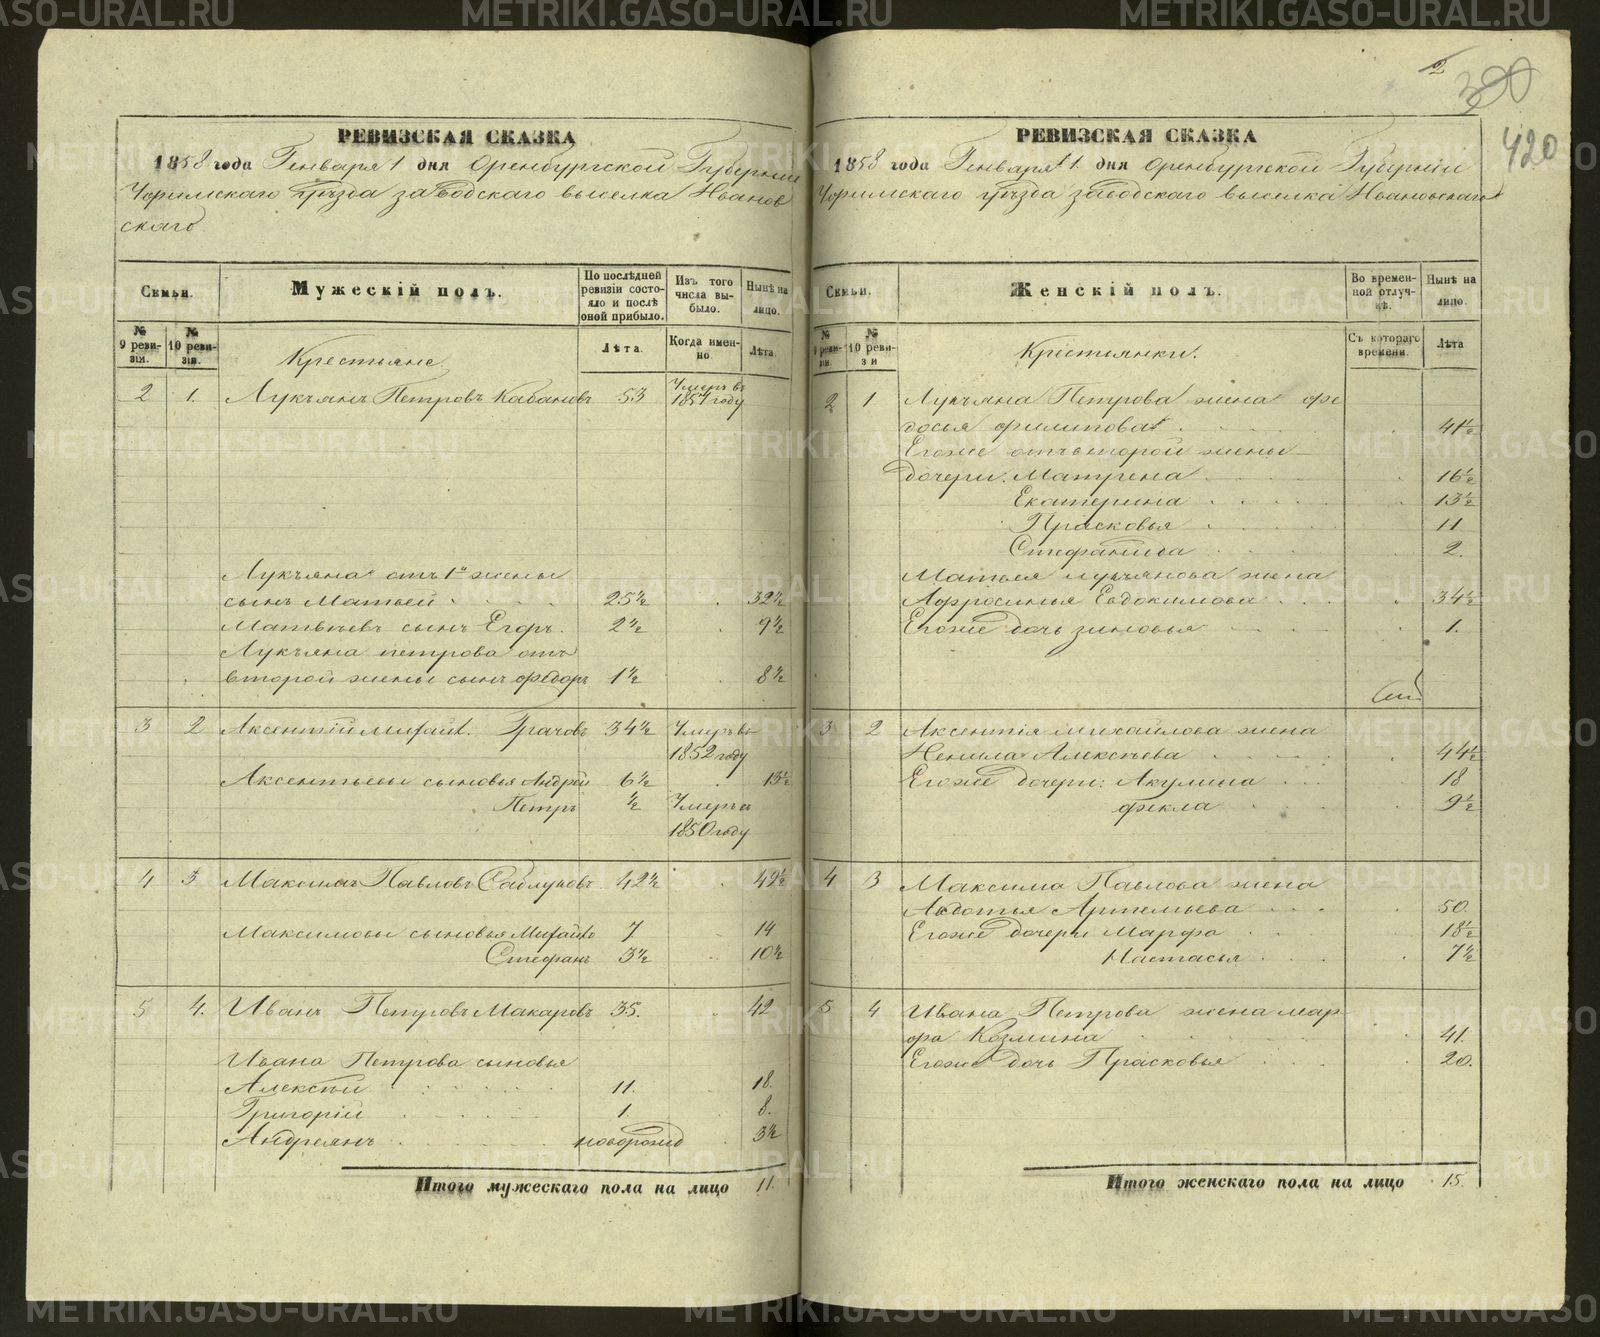 2
420
РЕВИЗСКАЯ СКАЗКА
1858 года Генваря 1 дня Оренбургской Губернии
Уфимскаго Уѣзда заводскаго выселка Иванов
скаго
Семьи.
Мужескій полъ.
По послѣдней ревизіи состояло и послѣ оной прибыло.
Изъ того числа выбыло.
Нынѣ на лицо.
№ 9 ревизіи.
№ 10 ревизіи.
Крестьяне.
Лѣта.
Когда именно.
Лѣта.
2 1. Лукъянъ Петровъ Кабановъ 53 Умеръ въ 1857 году
Лукъяна отъ 1й жены
сынъ Матвей 25½ 32½
Матвѣевъ сынъ Егоръ. 2½ 9½
Лукъяна петрова отъ
второй жены сынъ Федоръ 1½ 8½
3 2 Аксентій Михаил. Грачовъ 34½ Умеръ въ 1852 году
Аксентьевы сыновья Андрей 6½ 13½
Петръ ½ Умеръ в 1850 году
4 3 Максимъ Павловъ 42½ 49½
Максимовы сыновья Михайло 7 14
Стефанъ 3½ 10½
5 4. Иванъ Петровъ Макаровъ 35. 42
Ивана Петрова сыновья
Алексѣй 11. 18.
Григорій 1. 8.
Андреянъ новорожд 3½
Итого мужескаго пола на лицо 11.
РЕВИЗСКАЯ СКАЗКА
1858 года Генваря 1. дня Оренбургской Губерніи
Уфимскаго уѣзда заводскаго выселка Ивановскаго
Семьи.
Женскій полъ.
Во временной отлучкѣ.
Нынѣ на лицо.
№ 9 ревизіи.
№ 10 ревизи
Крестьянки.
Съ котораго времени.
Лѣта
2 1 Лукъяна Петрова жена Фе
досья филипова 41½
Егоже отъ второй жены
дочери: Матрена 16½
Екатерина 13½
Прасковья 11
Стефанида 2.
Матвея лукъянова жена
Афросинья Евдокимова 34½
Егоже дочь зиновья 1.
3 2 Аксентія михаилова жена
Ненила Алексѣева 44½
Егоже дочери: Акулина 18
фекла 9½
4 3 Максима Павлова жена
Авдотья Артемьева 50.
Егоже дочери Марфа 18½
Настасья 7½
5 4 Ивана Петрова жена мар
фа Козмина 41.
Егоже дочь Прасковья 20.
Итого женскаго пола на лицо 15.
METRIKI.GASO-URAL.RU